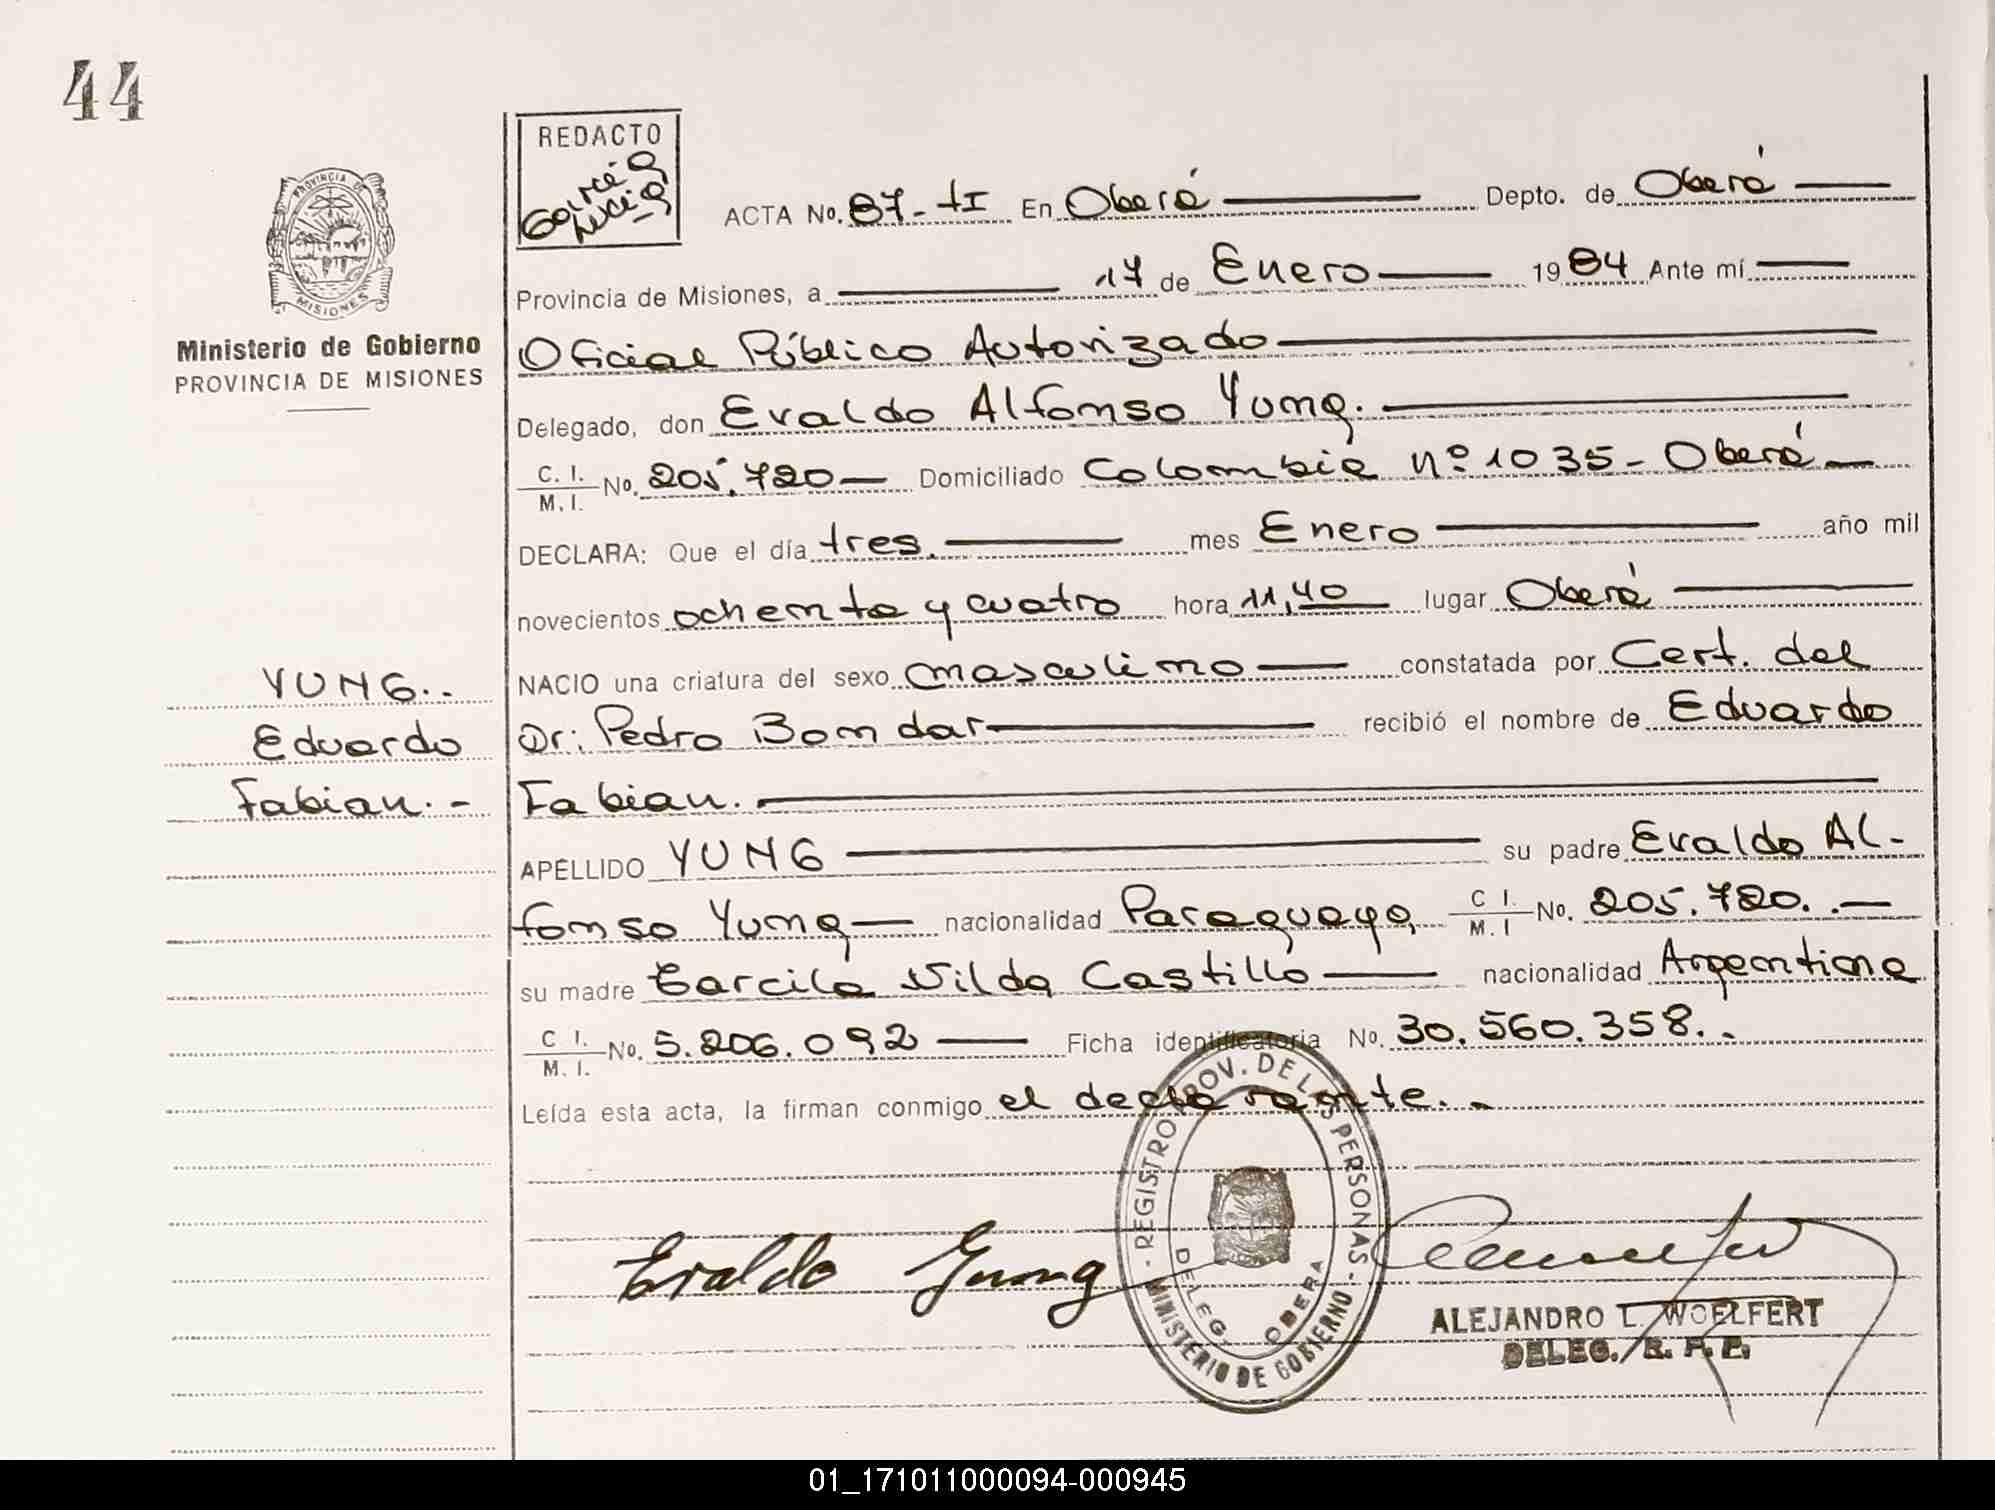 44
REDACTO
García
PROVINCIA DE
MISIONES
Ministerio de Gobierno
PROVINCIA DE MISIONES
ACTA No. 87-tI En Oberá Depto. de Oberá
Provincia de Misiones, a 17 de Enero 1984 Ante mí
Oficial Público Autorizado
Delegado, don Evaldo Alfonso Yung.
C. I. / M. I. No. 205.720 Domiciliado Colombia Nº 1035 - Oberá
DECLARA: Que el día tres. mes Enero año mil
novecientos ochenta y cuatro hora 11,40 lugar Oberá
NACIO una criatura del sexo masculino constatada por Cert. del
Dr: Pedro Bondar recibió el nombre de Eduardo
Fabian.
YUNG..
Eduardo
Fabian.-
APELLIDO YUNG su padre Evaldo Al-
fonso Yung nacionalidad Paraguaya C I. / M. I No. 205.720..
su madre Tarcila Nilda Castillo nacionalidad Argentina
C I. / M. I. No. 5.206.092 Ficha identificatoria No. 30.560.358..
Leída esta acta, la firman conmigo el declarante.-
Evaldo Yung
REGISTRO PROV. DE LAS PERSONAS
DELEG. OBERA
MINISTERIO DE GOBIERNO
ALEJANDRO L. WOELFERT
DELEG. R. P. P.
01_171011000094-000945